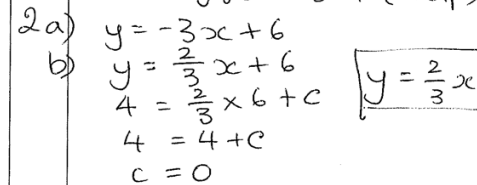 2a) y = -3x + 6
b) y = 2/3 x + 6
4 = 2/3 × 6 + c
4 = 4 + c
c = 0
y = 2/3 x